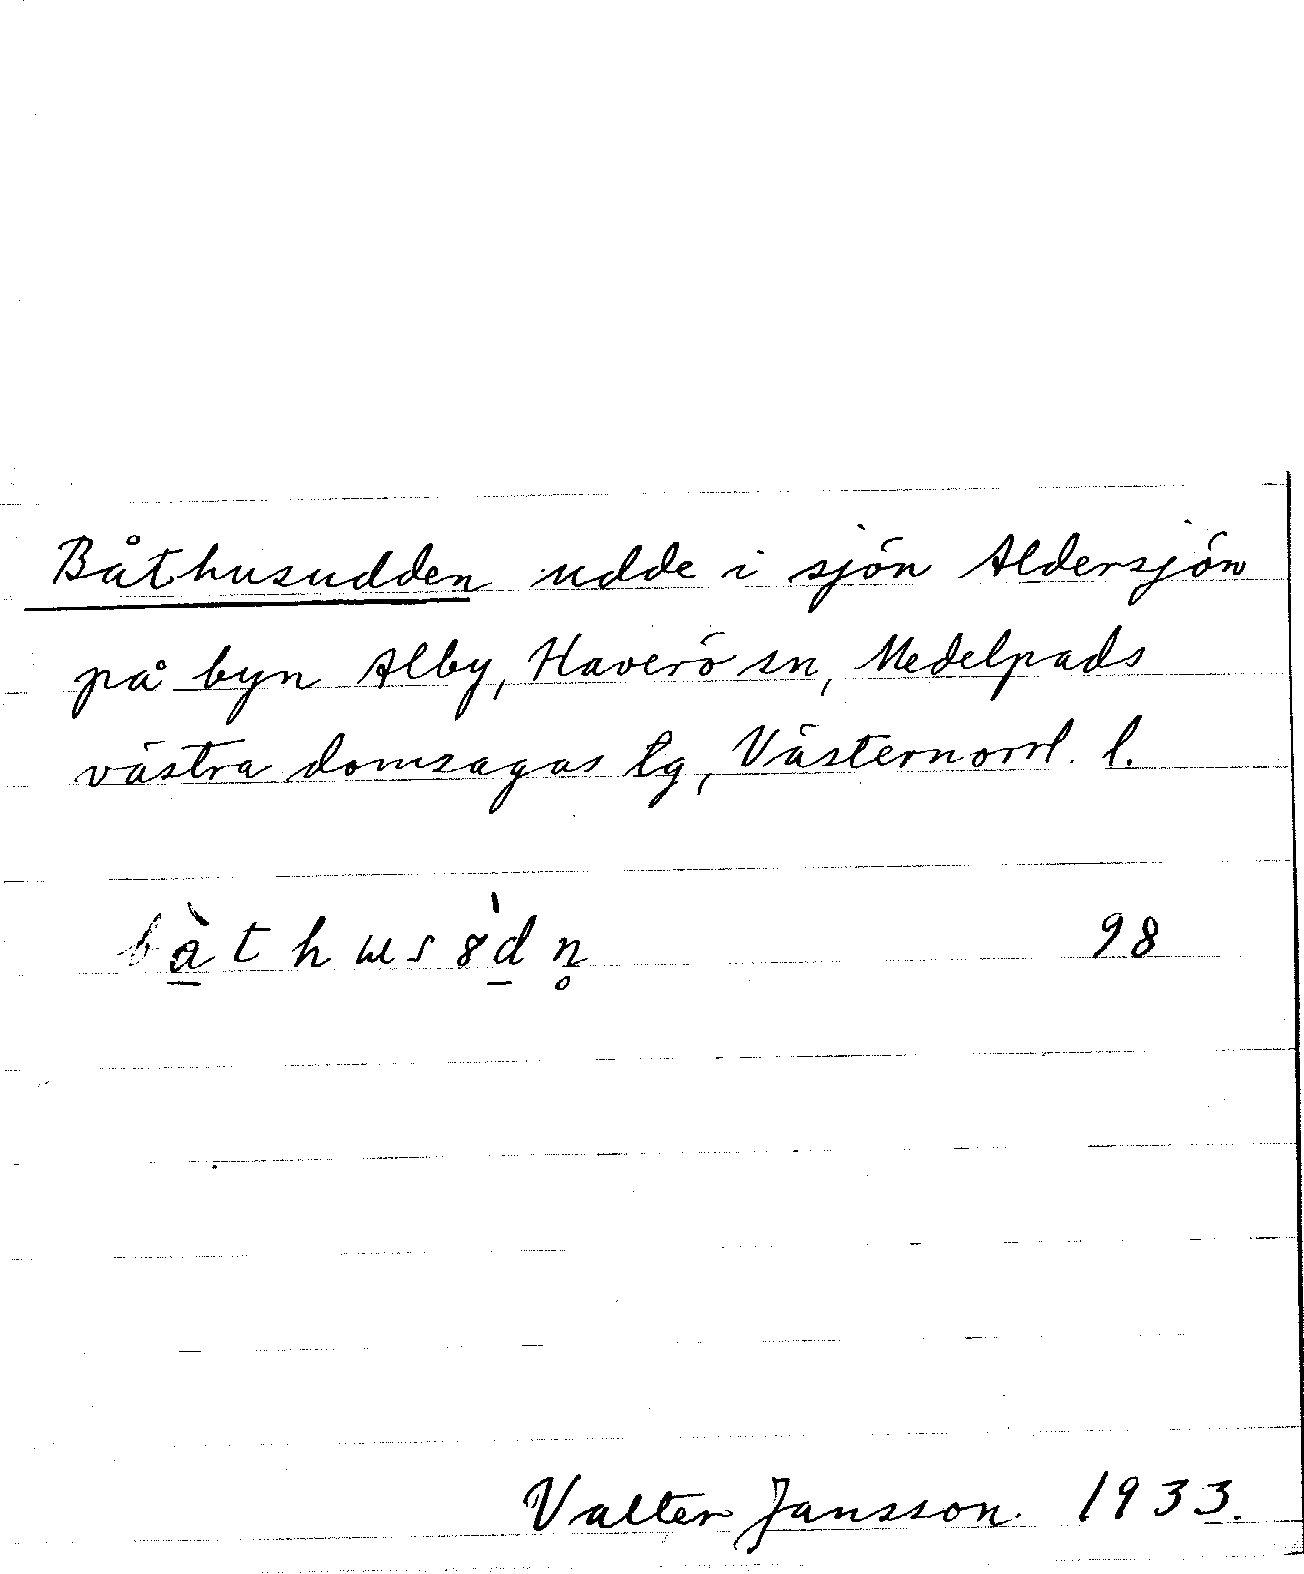 Båthusudden udde i sjön Aldersjön
på byn Alby, Haverö sn, Medelpads
västra domsagas tg, Västernorrl. l.
bàthusꝏ̀dn̥ 98
Valter Jansson. 1933.